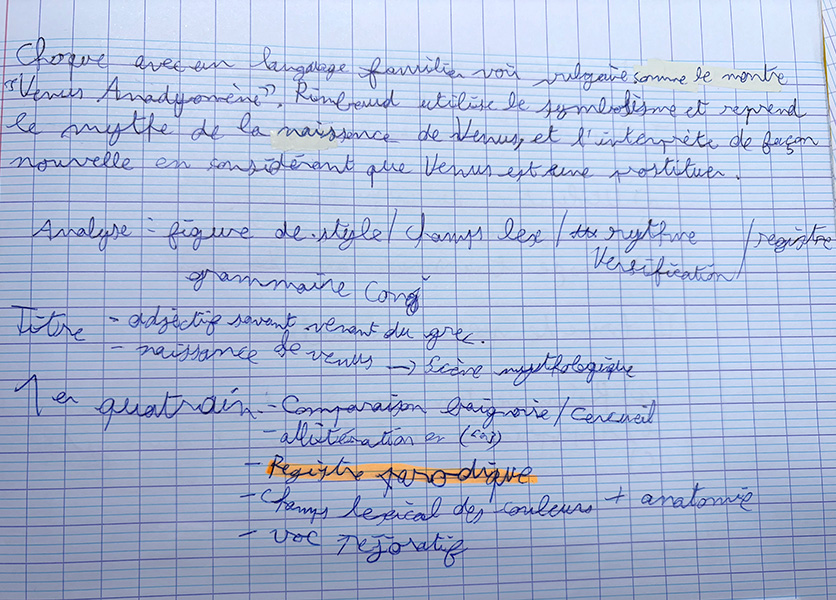 Choque avec un language familier voir vulgaire somme le montre
"Venus Anadyomène". Rimbaud utilise le symbolisme et reprend
le mythe de la naissance de Venus, et l'interprète de façon
nouvelle en considérant que Venus est une prostituer.
Analyse : figure de style / champs lex / rythme / registre
Versification
grammaire conj
Titre - adjectif savant venant du grec.
- naissance de venus → Scène mythologique
1 er quatrain - Comparaison baignoire / cercueil
- allitération en
- Registre parodique
- Champs lexical des couleurs + anatomie
- voc péjoratif